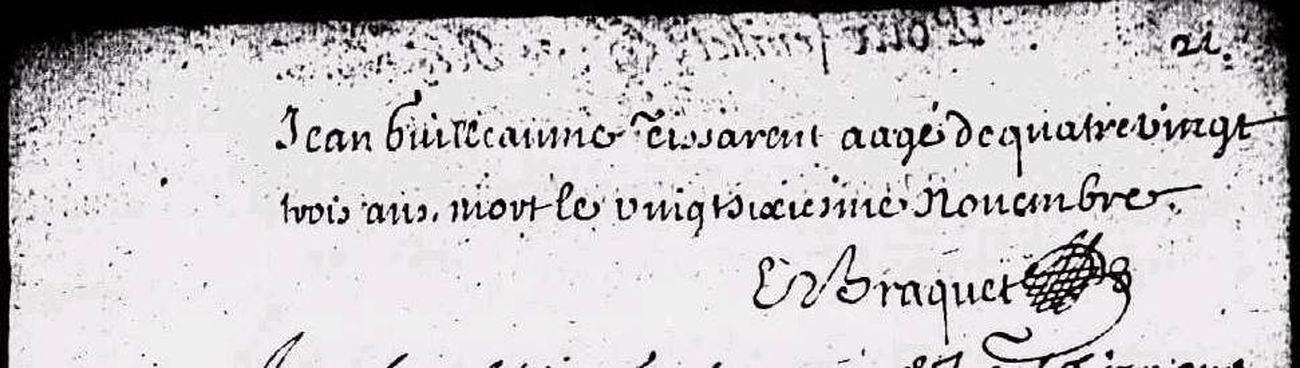 21.
Jean Guilleaume Tissarent aagé de quatre vingt
trois ans. mort le vingtsixiesme Novembre.
E Braquet